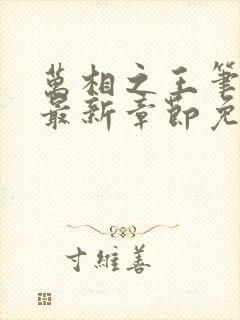 萬相之王筆
最新章節免
寸維善